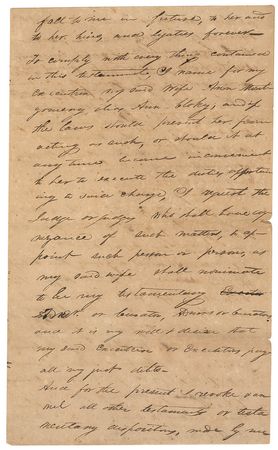 fall to me in future, to her and
to her heirs and legatees forever
To comply with every thing contained
in this testament, I name for my
executrix my said Wife Ann Mont
gomery alias Ann Cloky, and if
the laws should prevent her from
acting as such, or should it at
any time become inconvenient
to her to execute the duties
ing a such charge, I request the
Judge or judges who shall have cog
nizance of such matters, to ap
point such person or persons, as
my said wife shall nominate
to be my testamentary
or Executor,
and it is my will & desire that
my said Executrix or Executors pay
all my just debts
And for the present I revoke an
nul all other testaments or testa
mentary dispositions, made by me